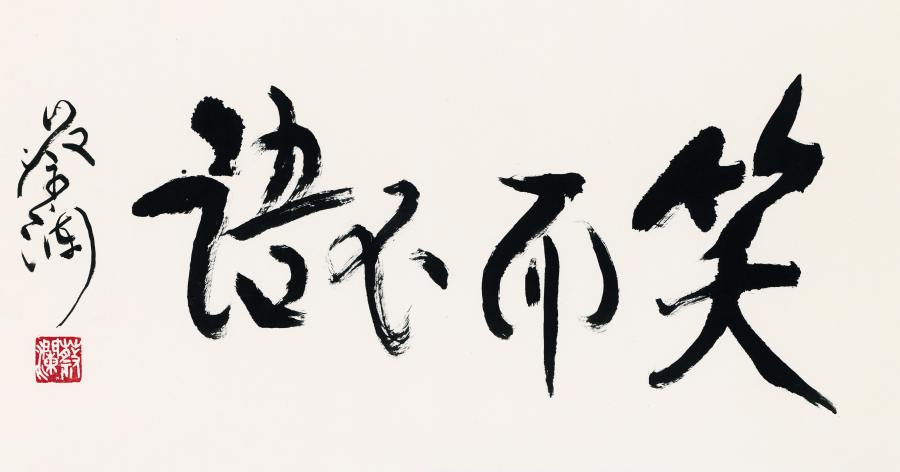 笑而不語
蔡瀾
蔡瀾